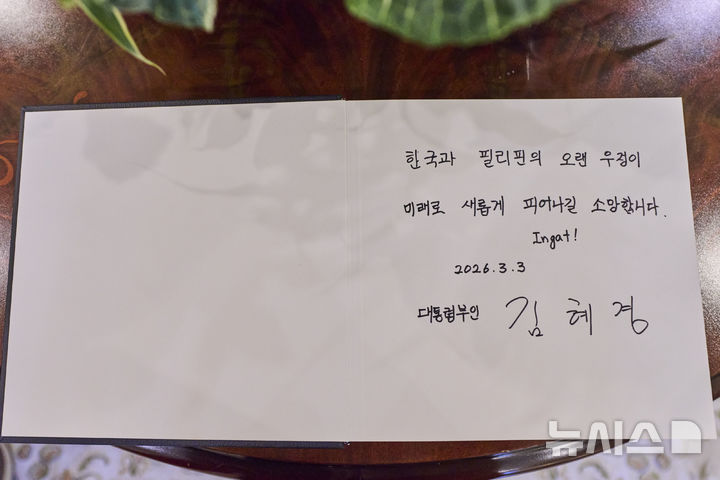 한국과 필리핀의 오랜 우정이
미래로 새롭게 피어나길 소망합니다.
Ingat!
2026.3.3
대통령부인 김혜경
뉴시스